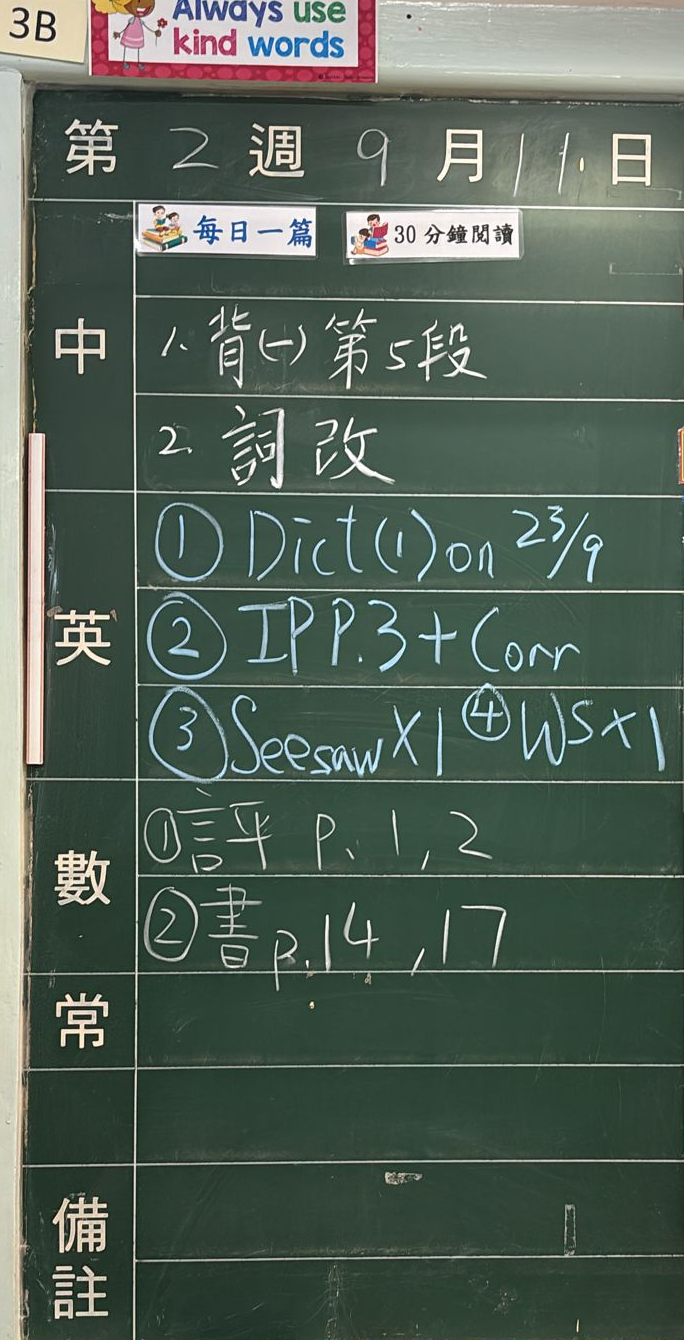 3B
Always use
kind words
第 2 週 9 月 11 日
每日一篇 30分鐘閱讀
中
1. 背(一)第5段
2. 詞改
英
① Dict(1) on 23/9
② IP P.3 + Corr
③ Seesaw X1 ④ WS X1
數
① 評 P. 1, 2
② 書 P. 14, 17
常
備註